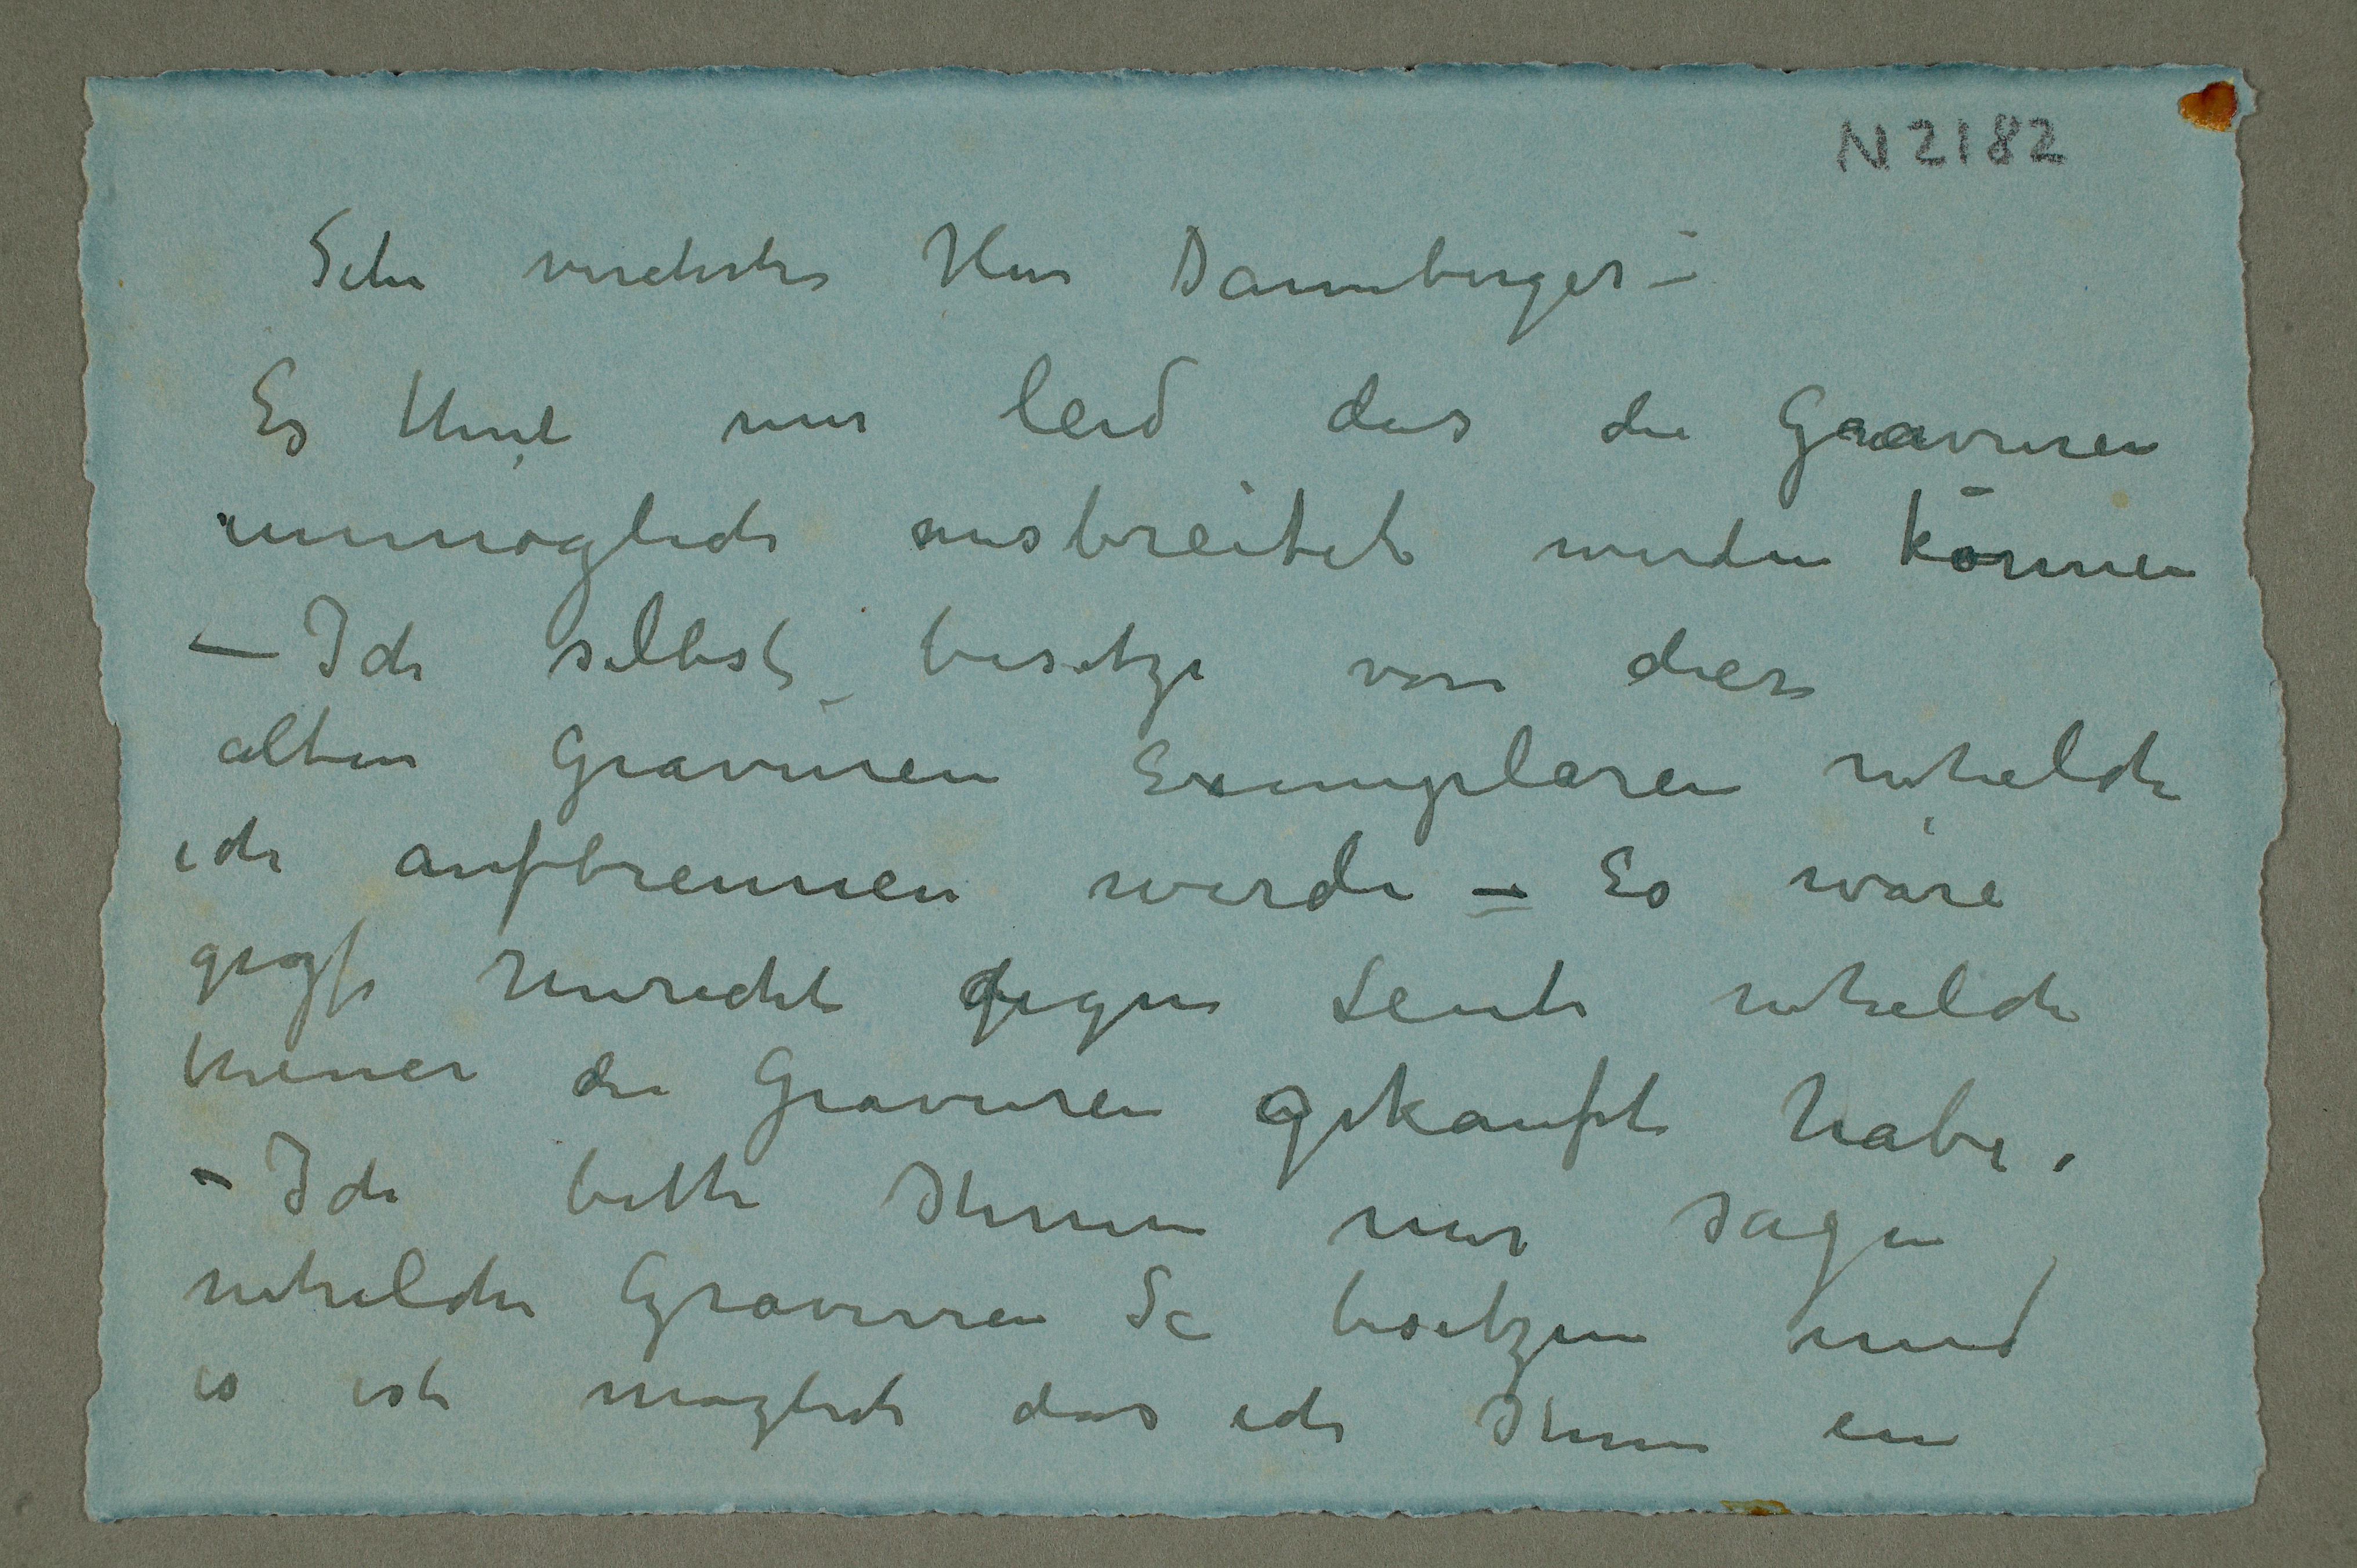 N 2182
Sehr verehrter Herr Dannberger –
Es thut mir leid das die Gravuren
unmöglich ausbreitet werden können
– Ich selbst besitze von diese
alten Gravuren Exemplaren whelche
ich aufbrennen werde – Es wäre
Unrecht gegen Leute whelche
theuer die Gravuren gekauft habe.
– Ich bitte Ihnen mir sagen
whelche Gravuren Se besitzen und
es ist möglich das ich Ihnen ein